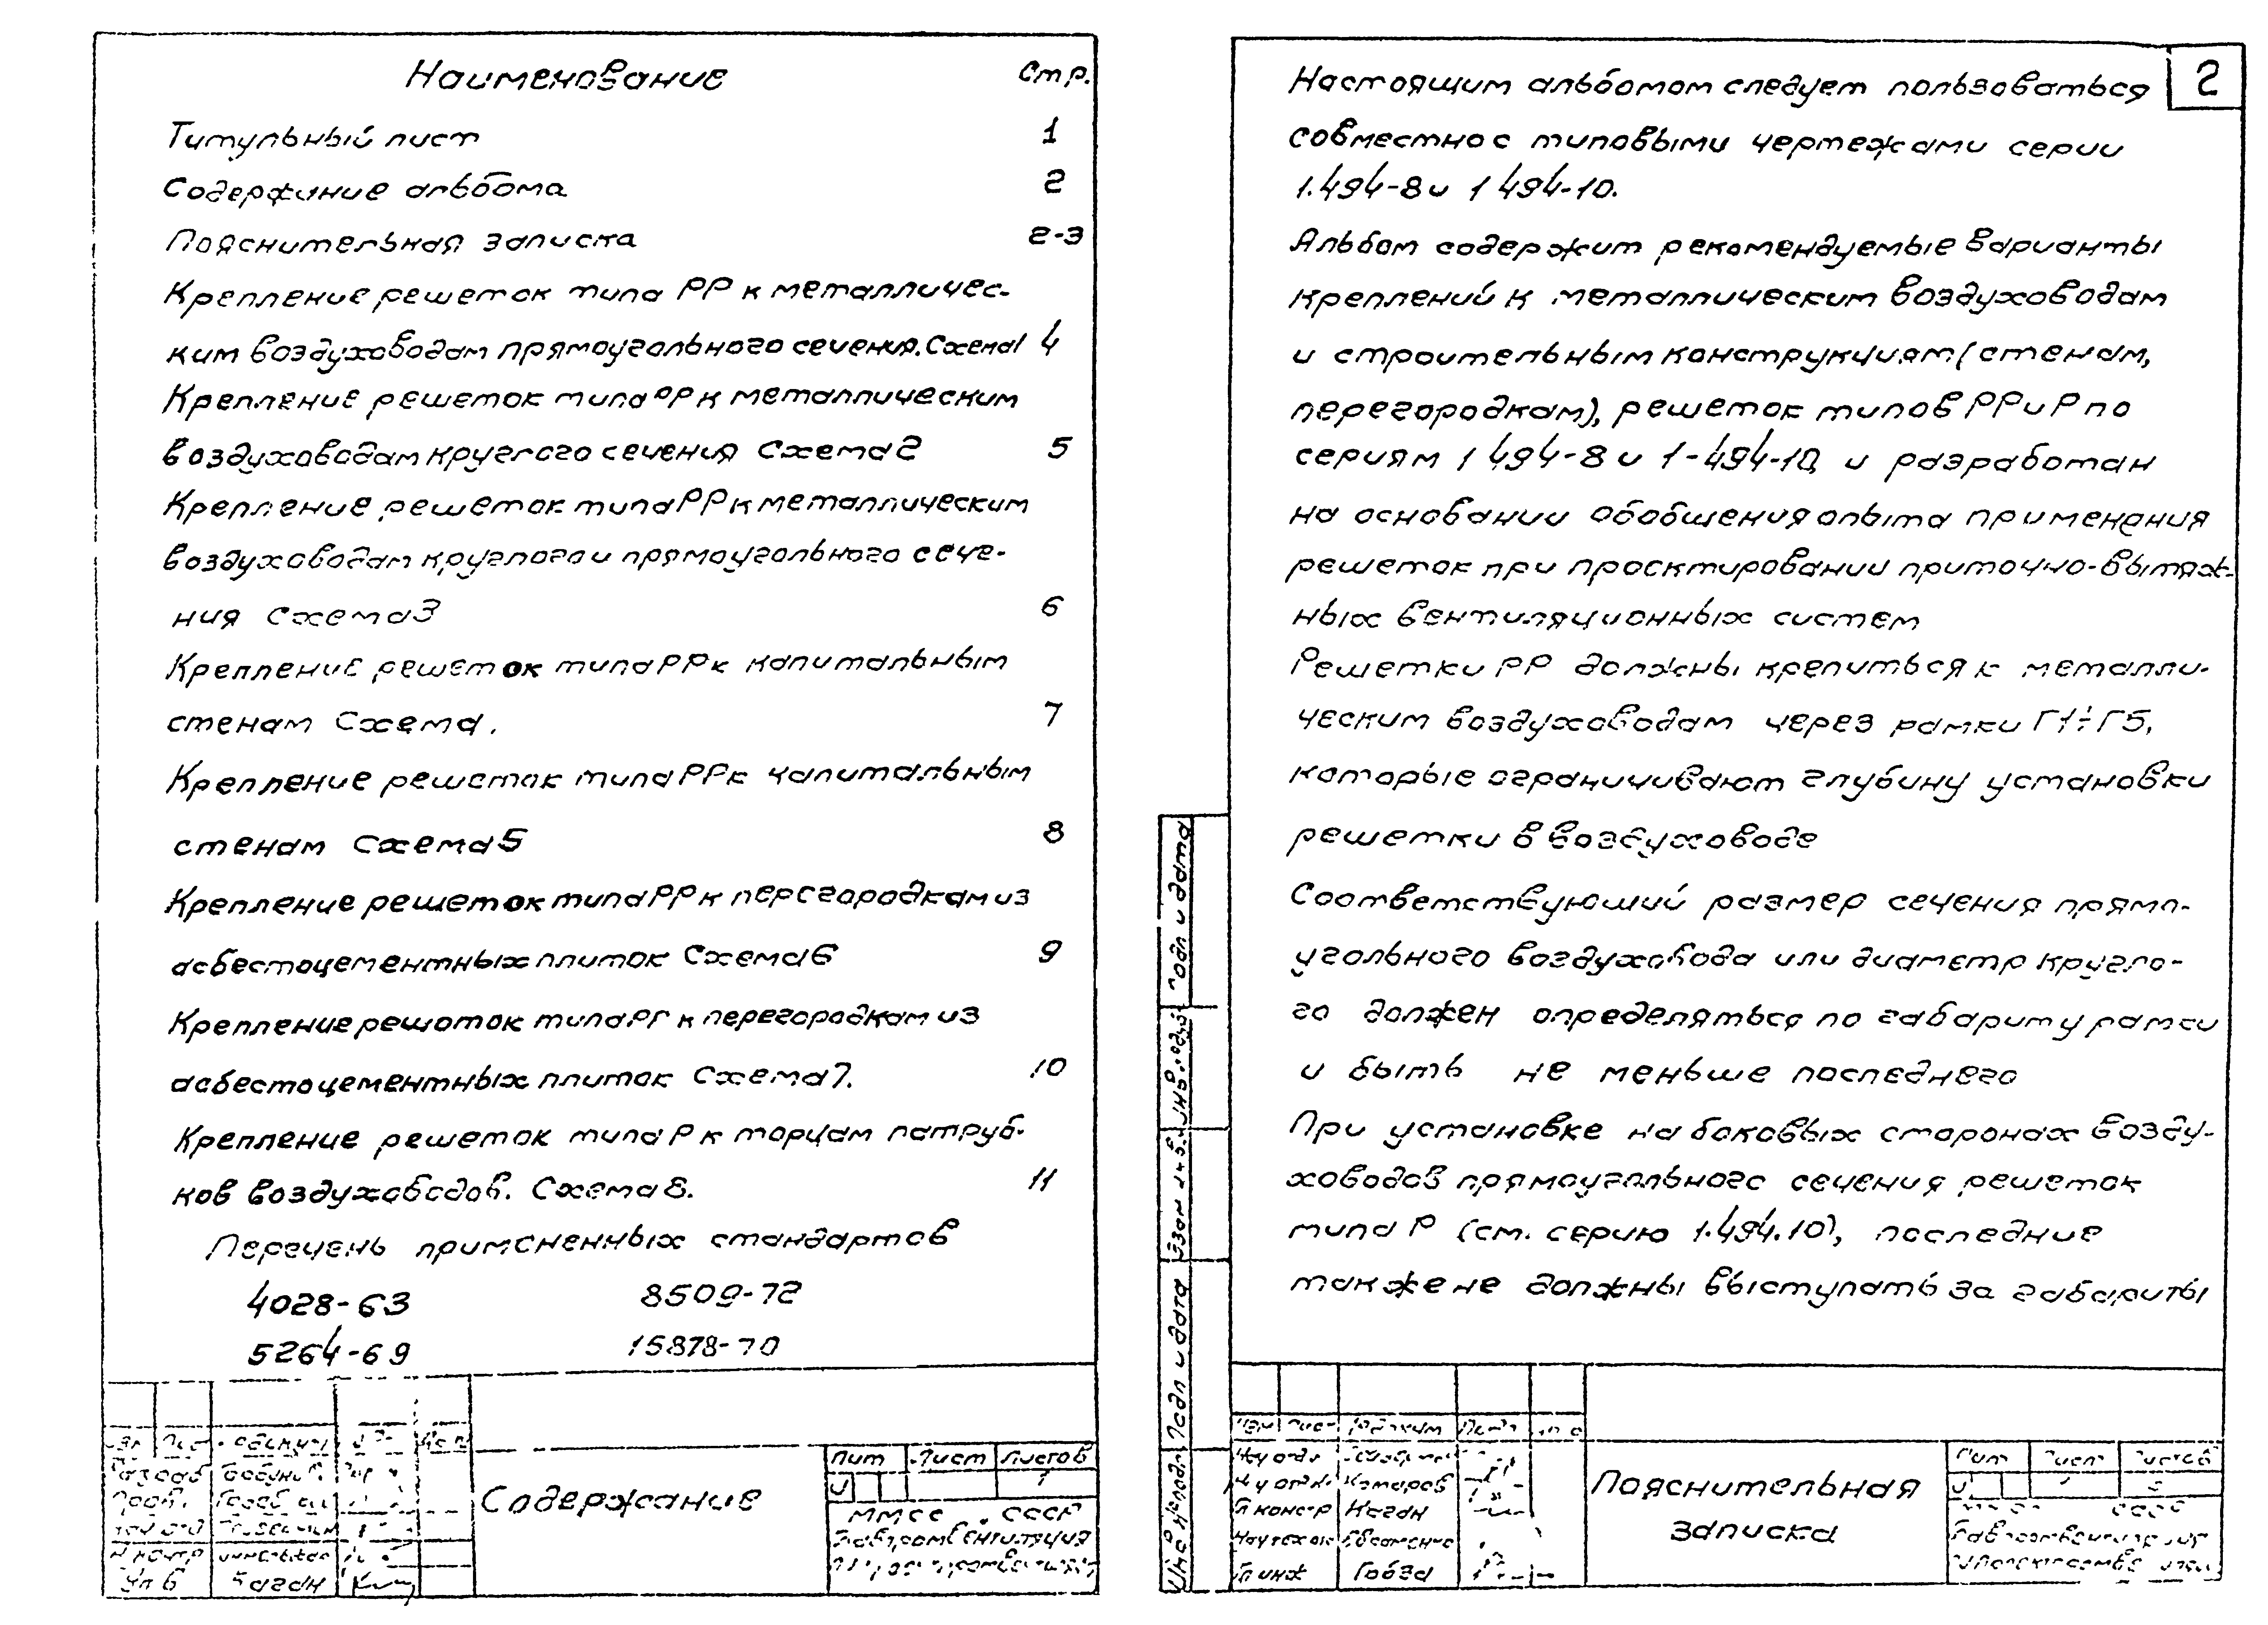 Наименование Стр.
Титульный лист 1
Содержание альбома 2
Пояснительная записка 2-3
Крепление решеток типа РР к металличес-
ким воздуховодам прямоугольного сечения. Схема 1 4
Крепление решеток типа РР к металлическим
воздуховодам круглого сечения Схема 2 5
Крепление решеток типа РР к металлическим
воздуховодам круглого и прямоугольного сече-
ния Схема 3 6
Крепление решеток типа РР к капитальным
стенам Схема . 7
Крепление решеток типа РР к капитальным
стенам Схема 5 8
Крепление решеток типа РР к перегородкам из
асбестоцементных плиток Схема 6 9
Крепление решеток типа РР к перегородкам из
асбестоцементных плиток Схема 7. 10
Крепление решеток типа Р к торцам патруб-
ков воздуховодов. Схема 8. 11
Перечень примененных стандартов
4028-63 8509-72
5264-69 15878-70
Содержание
Лит Лист Листов
И 1
ММСС СССР
Главпромвентиляция
2
Настоящим альбомом следует пользоваться
совместно с типовыми чертежами серии
1.494-8 и 1 494-10.
Альбом содержит рекомендуемые варианты
креплений к металлическим воздуховодам
и строительным конструкциям (стенам,
перегородкам), решеток типов РР и Р по
сериям 1 494-8 и 1-494-10, и разработан
на основании обобщения опыта применения
решеток при проектировании приточно-вытяж-
ных вентиляционных систем
Решетки РР должны крепиться к металли-
ческим воздуховодам через рамки Г1÷Г5,
которые ограничивают глубину установки
решетки в воздуховоде
Соответствующий размер сечения прямо-
угольного воздуховода или диаметр кругло-
го должен определяться по габариту рамки
и быть не меньше последнего
При установке на боковых сторонах возду-
ховодов прямоугольного сечения решеток
типа Р (см. серию 1.494.10), последние
также не должны выступать за габариты
Подп и дата
Взам инв.
Подп и дата
Инв № подл
Нач отд
Гл констр Каган
Гл инж Гобза
Пояснительная
записка
Лит Лист Листов